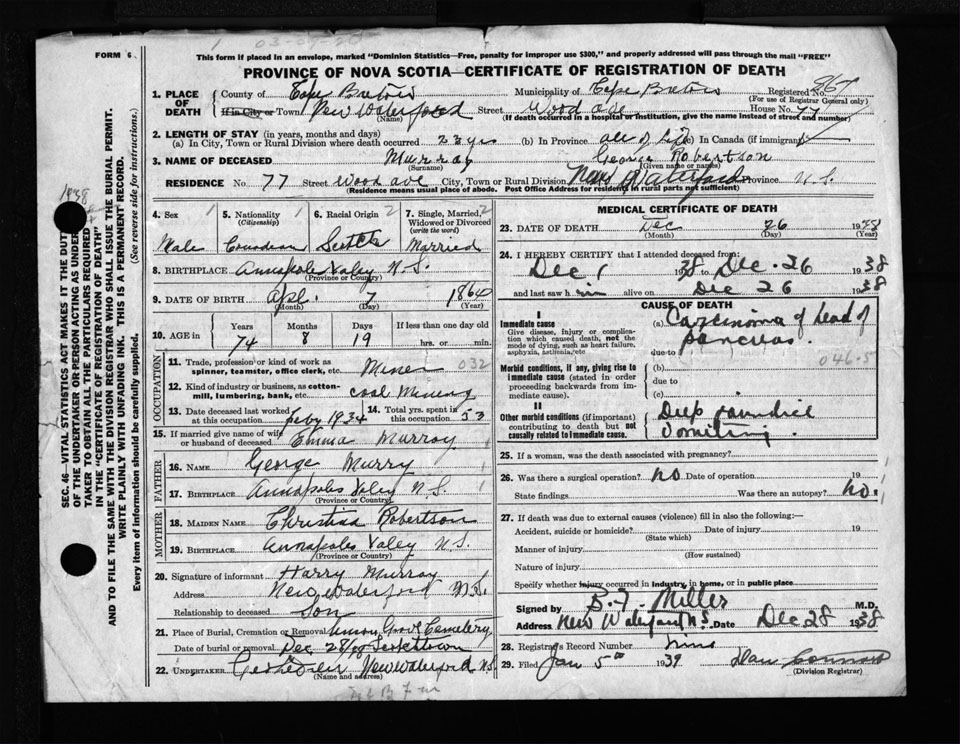 FORM 6
This form if placed in an envelope, marked "Dominion Statistics—Free, penalty for improper use $300," and properly addressed will pass through the mail "FREE"
PROVINCE OF NOVA SCOTIA—CERTIFICATE OF REGISTRATION OF DEATH
1. PLACE OF DEATH
County of Cape Breton Municipality of Cape Breton Registered No. 867
(For use of Registrar General only)
If in City or Town New Waterford Street Wood ave House No. 77
(Name) (If death occurred in a hospital or institution, give the name instead of street and number)
2. LENGTH OF STAY (in years, months and days)
(a) In City, Town or Rural Division where death occurred 23 yrs (b) In Province all of life (c) In Canada (if immigrant)
3. NAME OF DECEASED Murray George Robertson
(Surname) (Given name or names)
RESIDENCE No. 77 Street Wood ave City, Town or Rural Division New Waterford Province N.S.
(Residence means usual place of abode. Post Office Address for residents in rural parts not sufficient)
4. Sex Male
5. Nationality (Citizenship) Canadian
6. Racial Origin Scotch
7. Single, Married, Widowed or Divorced (write the word) Married
8. BIRTHPLACE Annapolis Valey N.S.
(Province or Country)
9. DATE OF BIRTH Apl. 7 1864
(Month) (Day) (Year)
10. AGE in Years Months Days If less than one day old
74 8 19 hrs. or min.
OCCUPATION
11. Trade, profession or kind of work as spinner, teamster, office clerk, etc. Miner 032
12. Kind of industry or business, as cotton-mill, lumbering, bank, etc. coal Mining
13. Date deceased last worked at this occupation Feby 1934
14. Total yrs. spent in this occupation 53
15. If married give name of wife or husband of deceased Emma Murray
FATHER
16. NAME George Murry
17. BIRTHPLACE Annapolis Valey N.S.
(Province or Country)
MOTHER
18. MAIDEN NAME Christina Robertson
19. BIRTHPLACE Annapolis Valey N.S.
(Province or Country)
20. Signature of informant Harry Murray
Address New Waterford N.S.
Relationship to deceased Son
21. Place of Burial, Cremation or Removal Union Grove Cemetery
Date of burial or removal Dec 28/38 Scotchtown
22. UNDERTAKER New Waterford N.S.
(Name and address)
MEDICAL CERTIFICATE OF DEATH
23. DATE OF DEATH Dec 26 1938
(Month) (Day) (Year)
24. I HEREBY CERTIFY that I attended deceased from:
Dec 1 1938 Dec. 26 1938
and last saw him alive on Dec 26 1938
CAUSE OF DEATH
I
Immediate cause
Give disease, injury or complication which caused death, not the mode of dying, such as heart failure, asphyxia, asthenia, etc.
(a) Carcinoma of head of pancreas.
due to 046.5
Morbid conditions, if any, giving rise to immediate cause (stated in order proceeding backwards from immediate cause).
(b)
due to
(c)
II
Other morbid conditions (if important) contributing to death but not causally related to immediate cause.
Deep jaundice
Vomiting.
25. If a woman, was the death associated with pregnancy?
26. Was there a surgical operation? No Date of operation 19
State findings Was there an autopsy? No.
27. If death was due to external causes (violence) fill in also the following:—
Accident, suicide or homicide? Date of injury 19
(State which)
Manner of injury
(How sustained)
Nature of injury
Specify whether injury occurred in industry, in home, or in public place
Signed by B. F. Miller M.D.
Address New Waterford N.S. Date Dec 28 1938
28. Registrar's Record Number
29. Filed Jan 5th 1939
(Division Registrar)
SEC. 46—VITAL STATISTICS ACT MAKES IT THE DUTY
OF THE UNDERTAKER OR PERSON ACTING AS UNDER-
TAKER TO OBTAIN ALL THE PARTICULARS REQUIRED
IN THE "CERTIFICATE OF REGISTRATION OF DEATH"
AND TO FILE THE SAME WITH THE DIVISION REGISTRAR WHO SHALL ISSUE THE BURIAL PERMIT.
WRITE PLAINLY WITH UNFADING INK. THIS IS A PERMANENT RECORD.
Every item of information should be carefully supplied. (See reverse side for instructions.)
1938